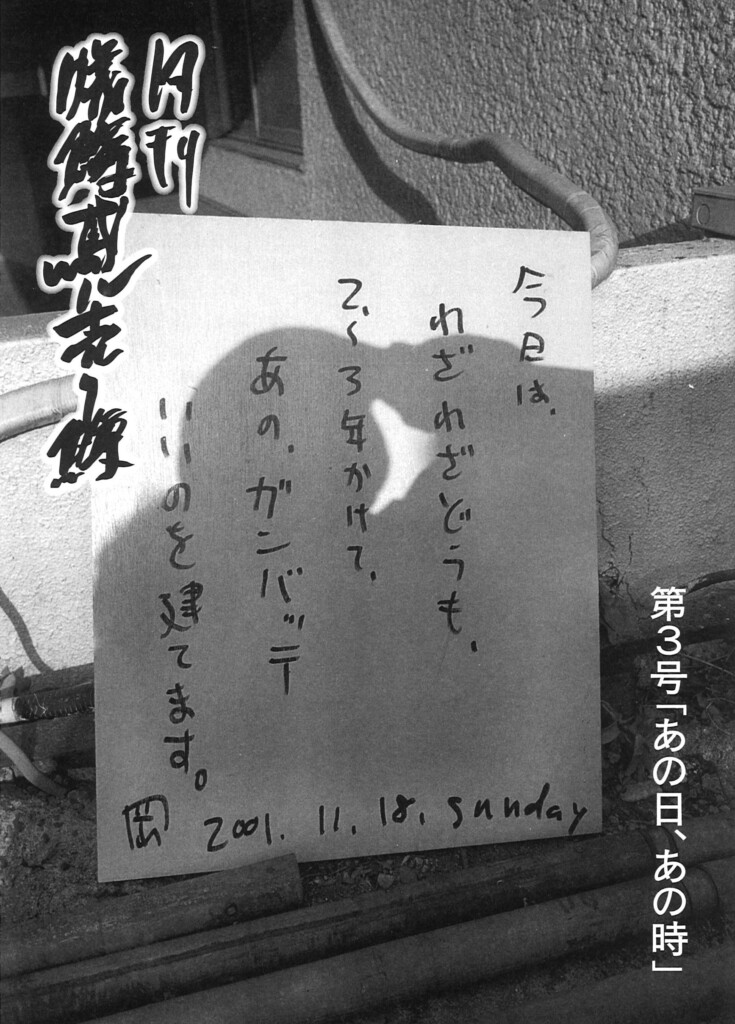 月刊
蟻鱒鳶
今日は、
わざわざどうも、
2、〜3年かけて、
あの、ガンバッテ
いいのを建てます。
岡 2001. 11. 18. sunday
第3号「あの日、あの時」